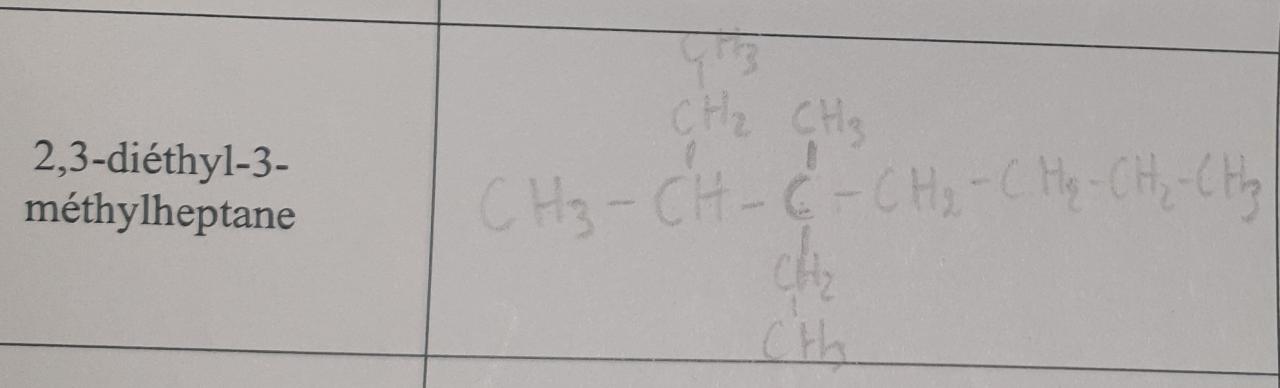 2,3-diéthyl-3-
méthylheptane
CH3
CH2 CH3
CH3-CH-C-CH2-CH2-CH2-CH3
CH2
CH3